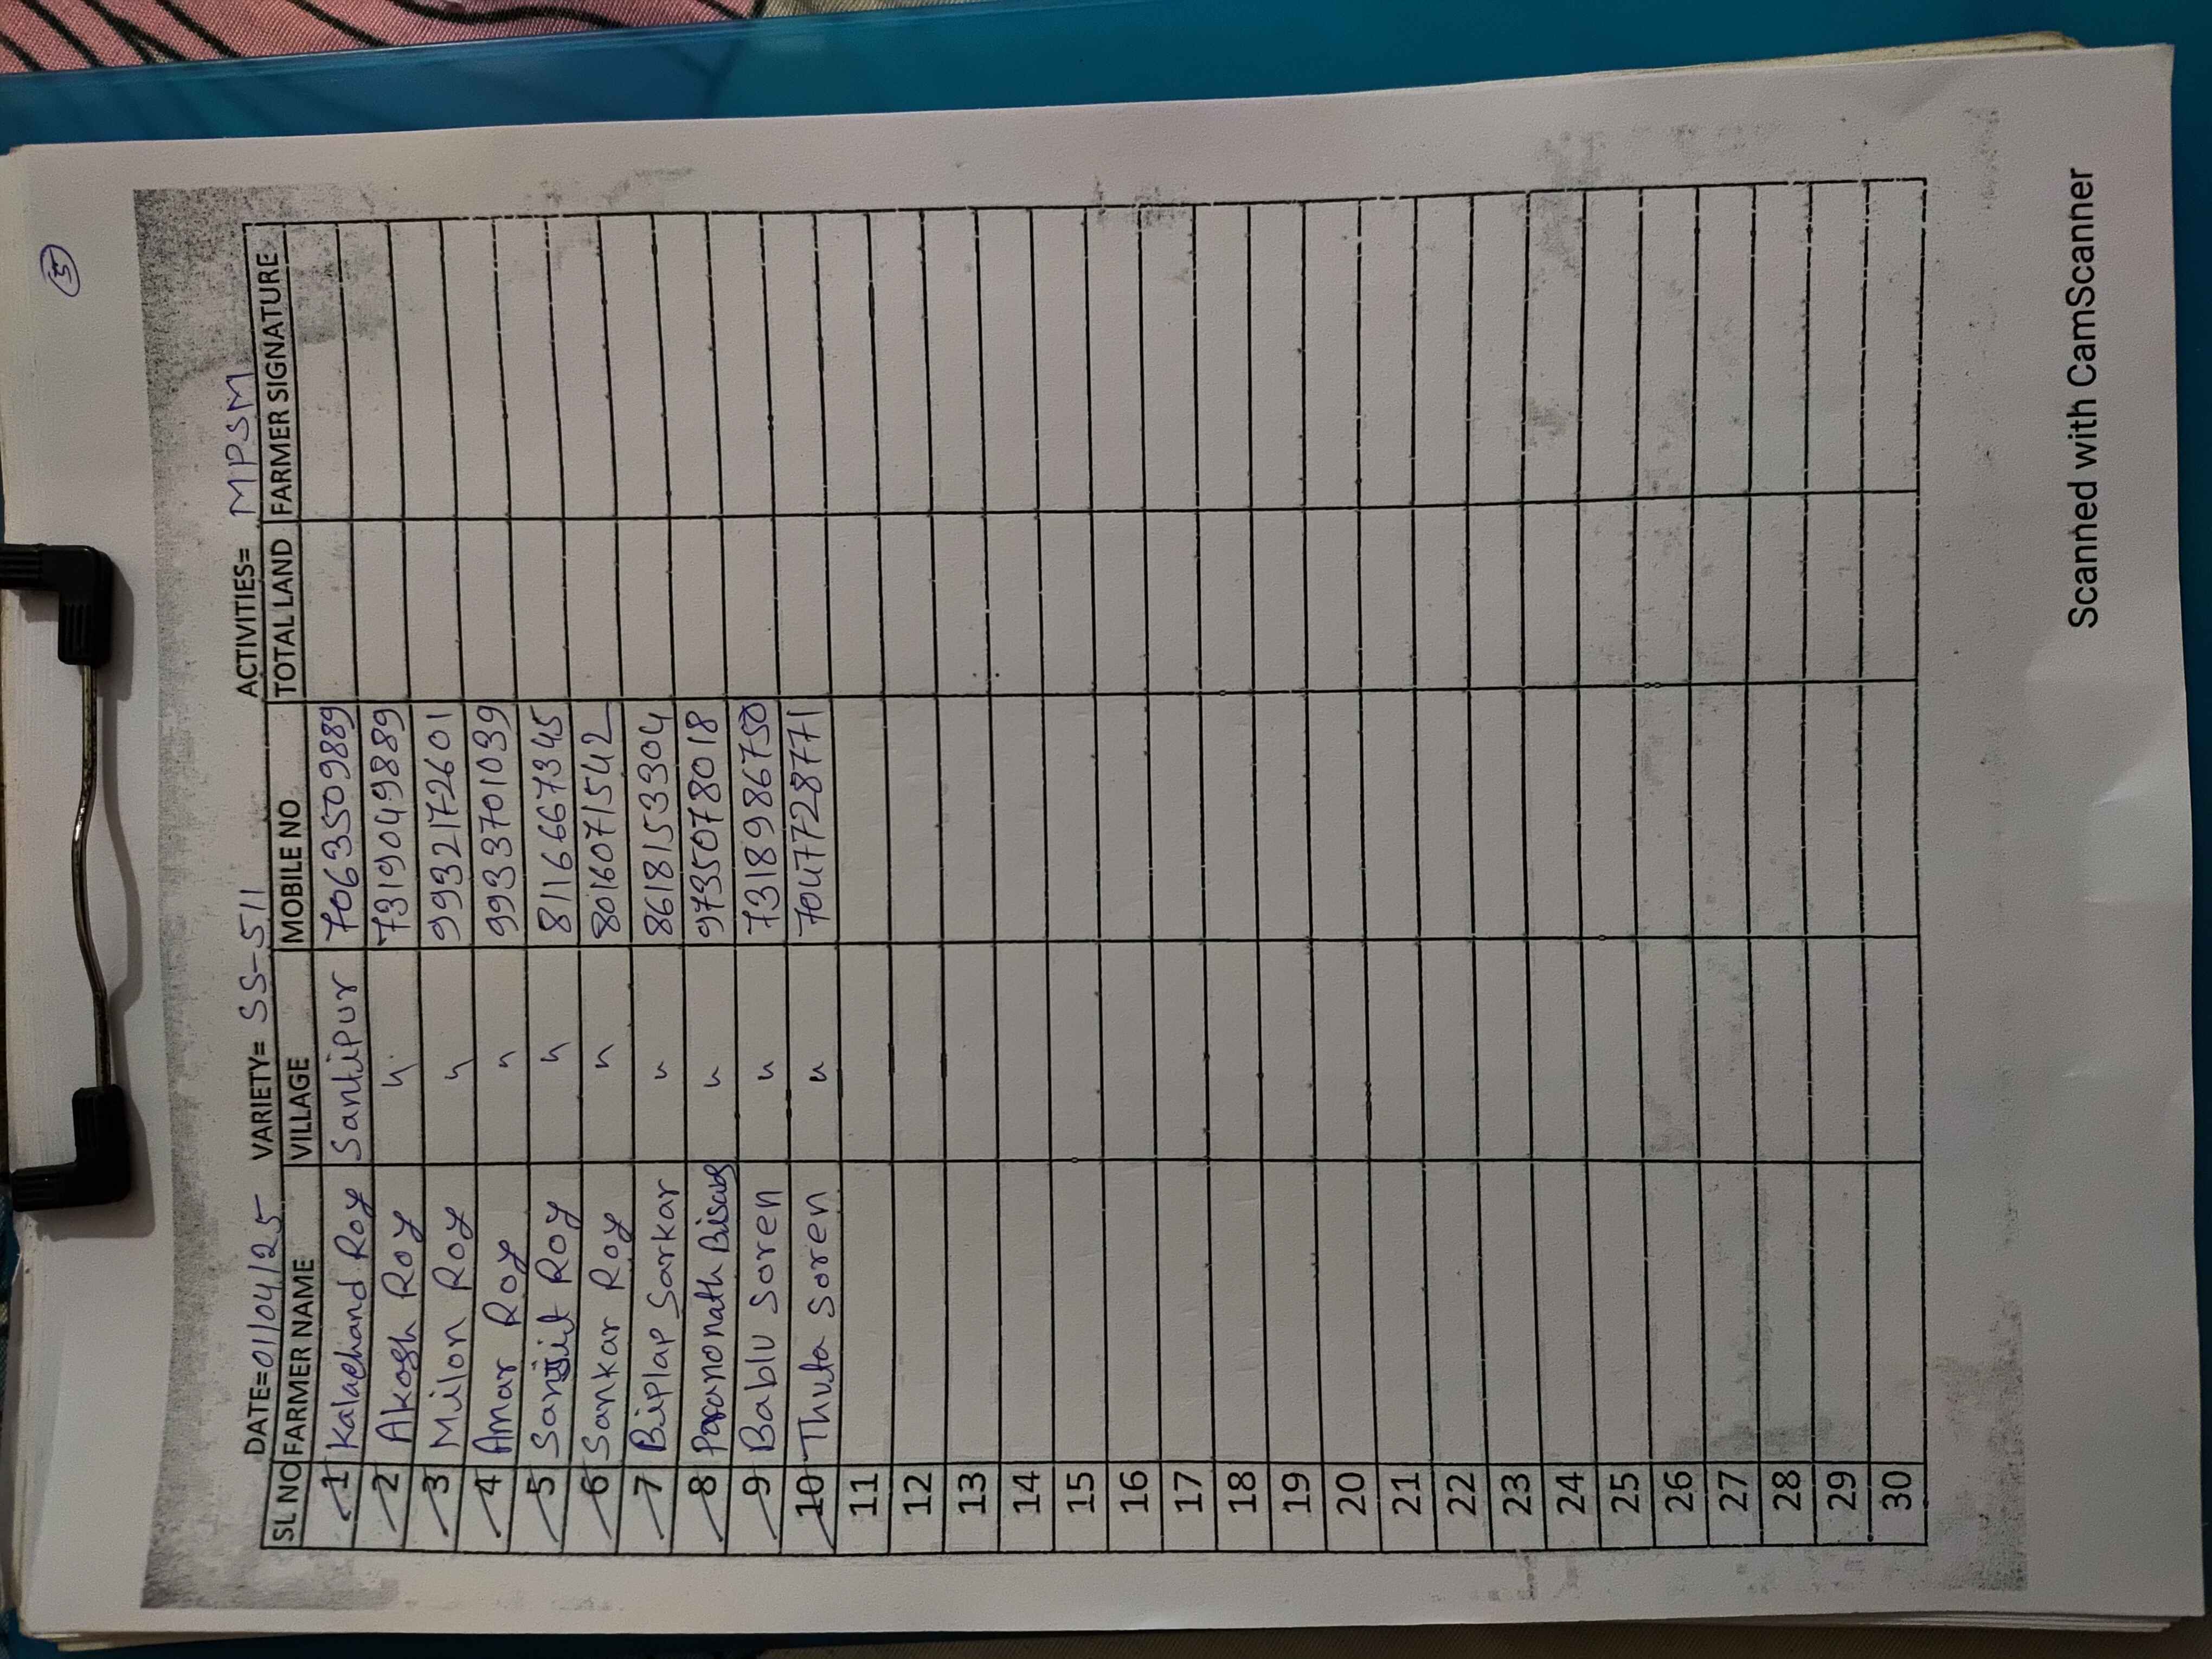 5
DATE=01/04/25 VARIETY= SS-511 ACTIVITIES= MPSM
SL NO FARMER NAME VILLAGE MOBILE NO TOTAL LAND FARMER SIGNATURE
1 Kalachand Roy Santipur 7063509889
2 Akash Roy " 7319049889
3 Milon Roy " 9932172601
4 Amar Roy " 9933701039
5 Sanjit Roy " 8116667345
6 Sankar Roy " 8016071542
7 Biplap Sarkar " 8618153304
8 Paramonath Bisas " 9735078018
9 Bablu Soren " 7318986750
10 Thuta Soren " 7047728771
11
12
13
14
15
16
17
18
19
20
21
22
23
24
25
26
27
28
29
30
Scanned with CamScanner